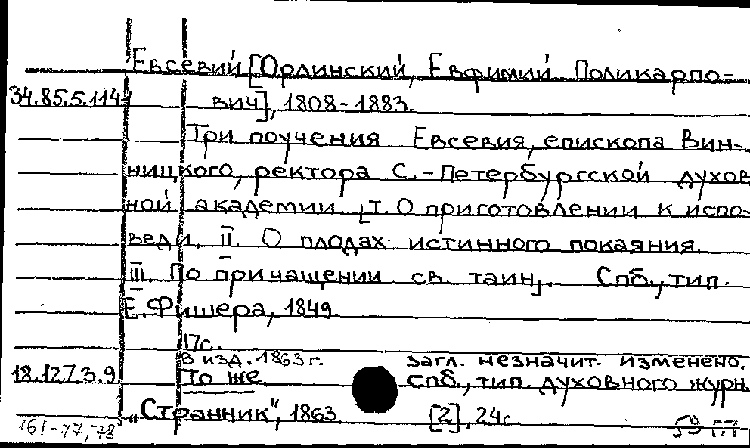 Евсевий [Орлинский, Евфимий Поликарпо-
34.85.5.114 вич], 1808-1883.
Три поучения Евсевия, епископа Вин-
ницкого, ректора С.-Петербургской духов
ной академии [I. О приготовлении к испо-
веди. II. О плодах истинного покаяния.
III. По причащении св. таин]. Спб., тип.
Е. Фишера, 1849.
17с.
В изд. 1863 г. загл. незначит. изменено.
18.127.3.9 То же Спб., тип. духовного журн.
„Странник", 1863. [2], 24с
161-77,78